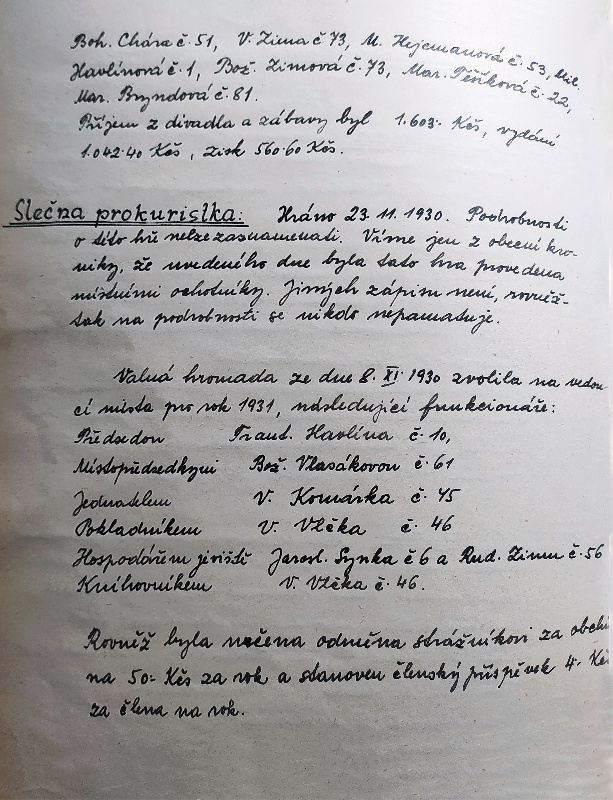 Boh. Chára č. 51, V. Zima č 73, M. Hejcmanová č. 53, Mil.
Havlínová č. 1, Bož. Zimová č. 73, Mar. Pěšková č. 22,
Mar. Bryndová č. 81.
Příjem z divadla a zábavy byl 1.603·- Kčs, vydání
1.042·40 Kčs, zisk 560·60 Kčs.
Slečna prokuristka: Hráno 23. 11. 1930. Podrobnosti
o této hře nelze zaznamenati. Víme jen z obecní kro-
niky, že uvedeného dne byla tato hra provedena
místními ochotníky. Jiných zápisu není, rovněž-
tak na podrobnosti se nikdo nepamatuje.
Valná hromada ze dne 8. XI. 1930 zvolila na vedou-
cí místa pro rok 1931, následující funkcionáře:
Předsedou Frant. Havlína č. 10,
Místopředsedkyni Bož. Vlasákovou č. 61
Jednatelem V. Komárka č. 45
Pokladníkem V. Vlčka č. 46
Hospodářem jeviště Jarosl. Synka č 6 a Rud. Zimu č. 56
Knihovníkem V. Vlčka č. 46.
Rovněž byla určena odměna strážníkovi za
na 50·- Kčs za rok a stanoven členský příspěvek 4·- Kčs
za člena na rok.